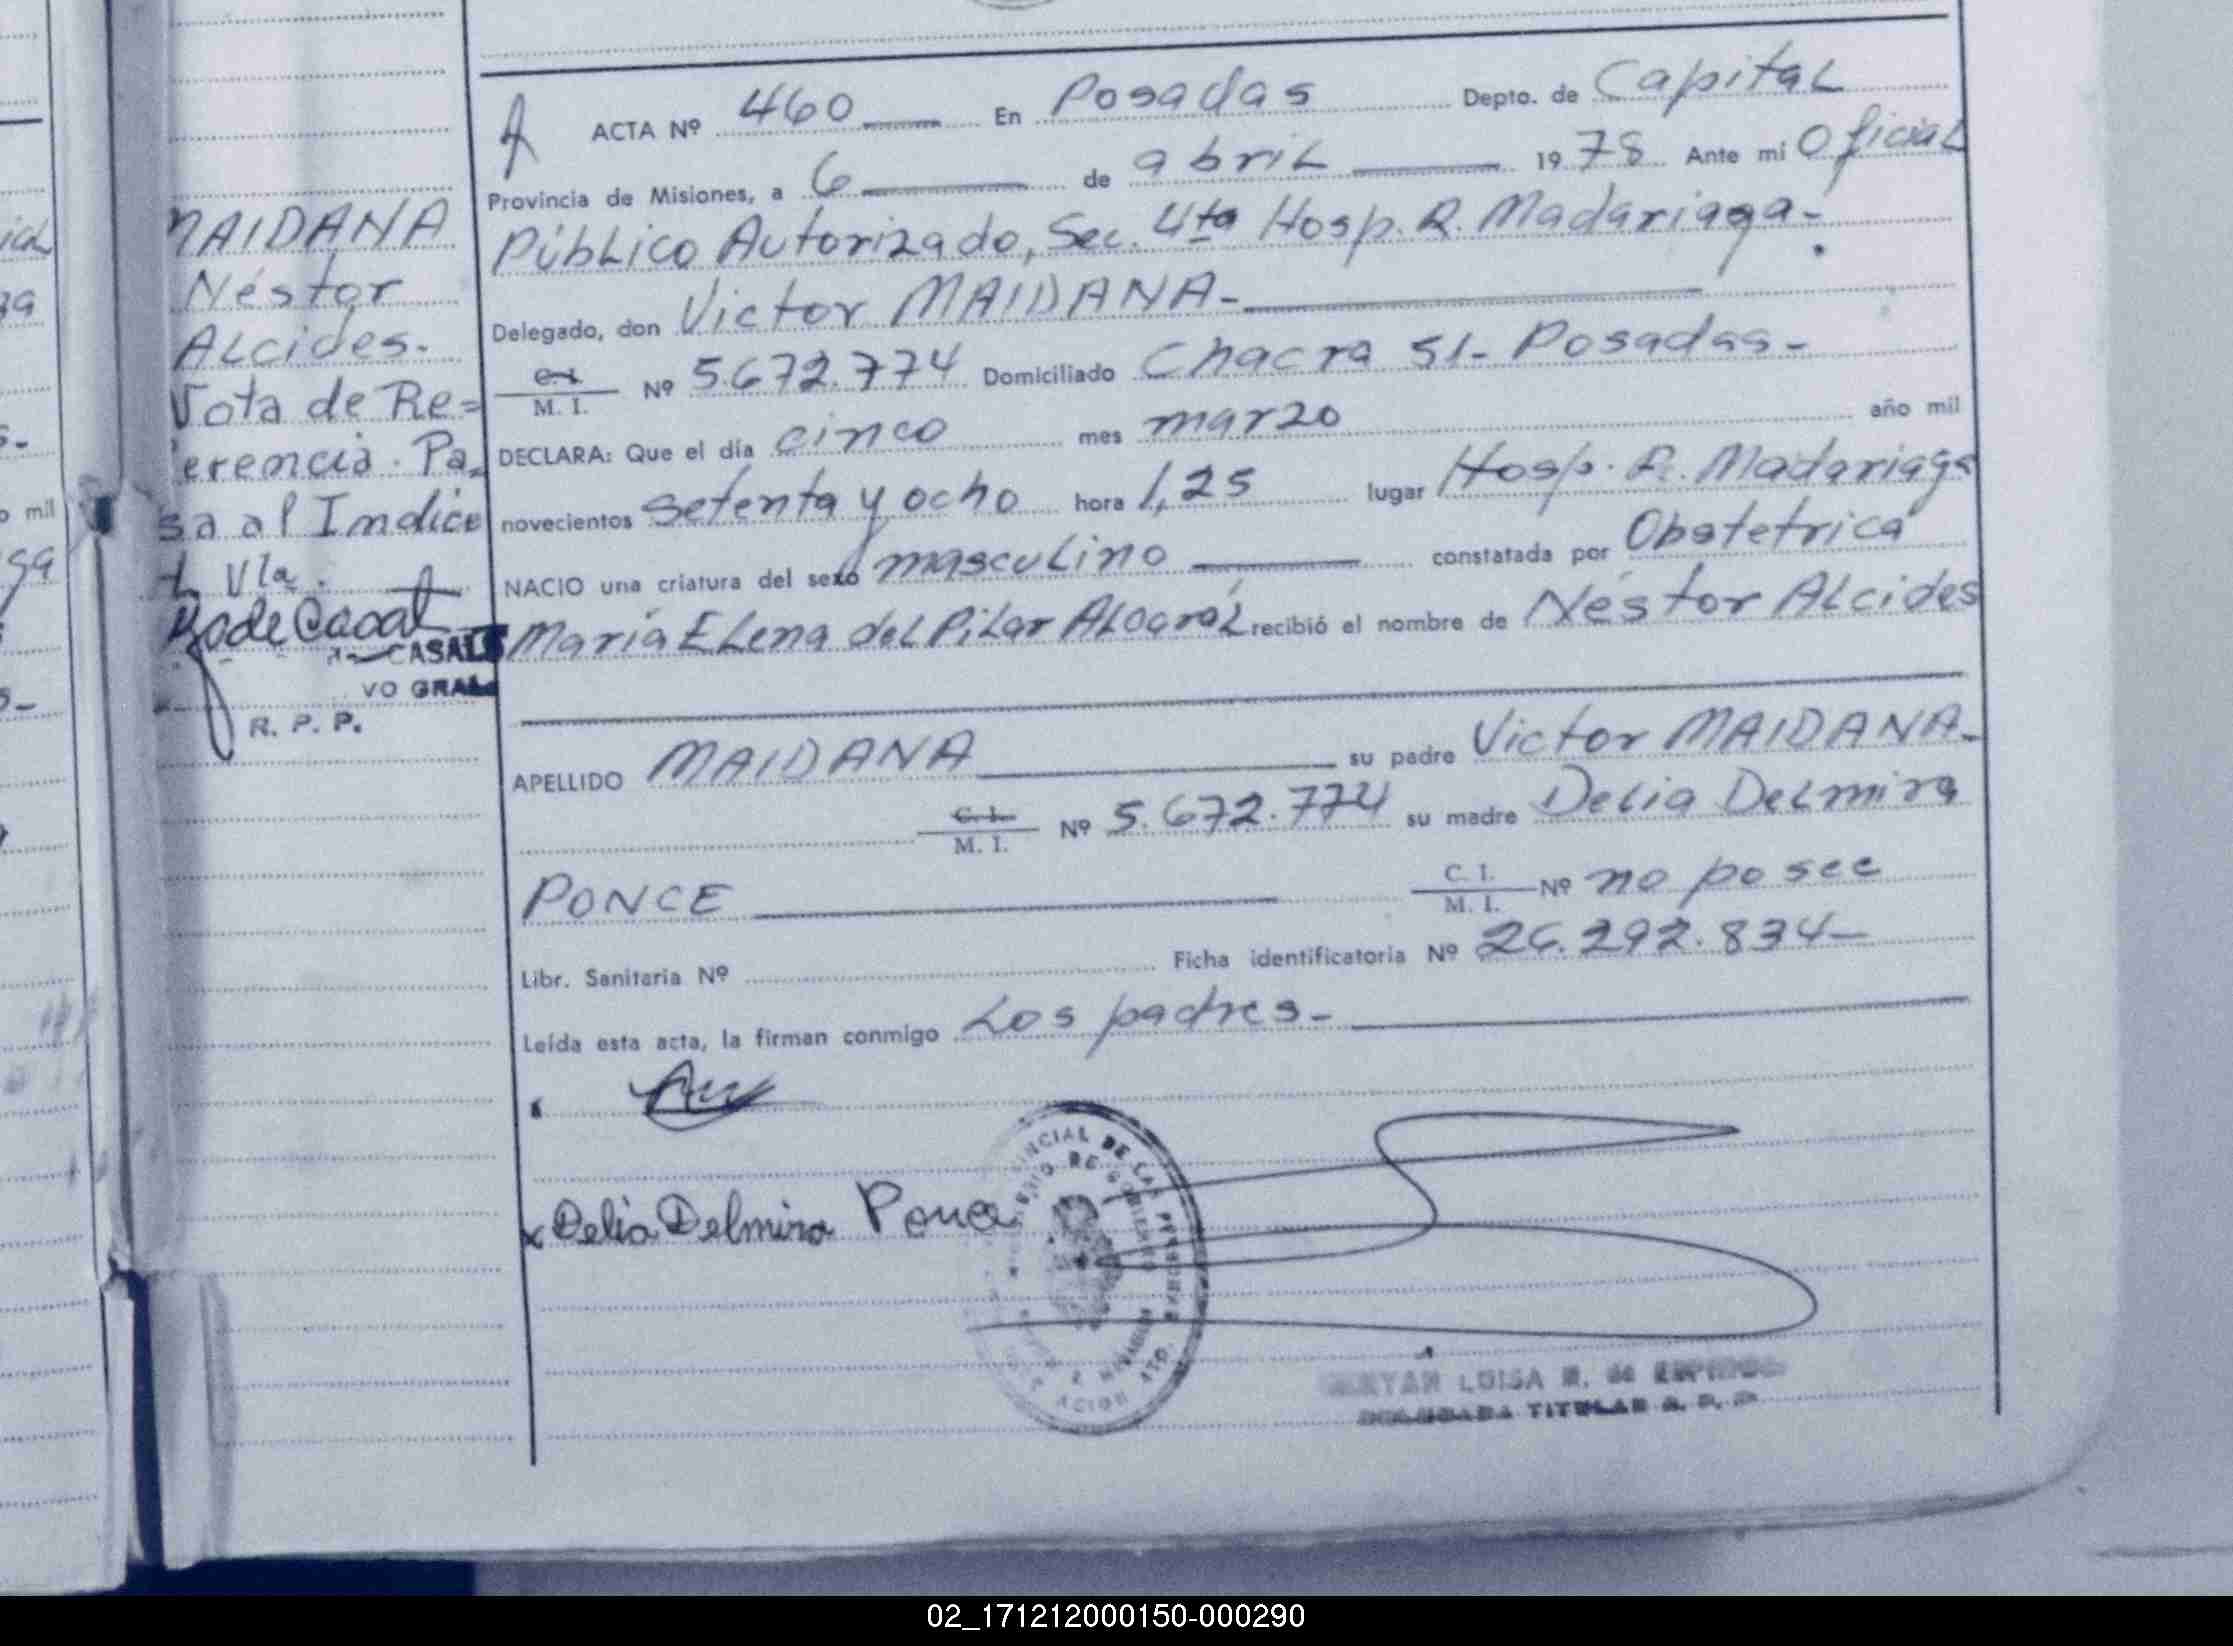 ACTA Nº 460 En Posadas Depto. de Capital
Provincia de Misiones, a 6 de abril 1978 Ante mí Oficial
Público Autorizado, Sec. 4ta Hosp. R. Madariaga-.
Delegado, don Victor MAIDANA-
C.I. M. I. Nº 5.672.774 Domiciliado Chacra 51- Posadas-
DECLARA: Que el día cinco mes marzo año mil
novecientos setenta y ocho hora 1,25 lugar Hosp. R. Madariaga
NACIO una criatura del sexo masculino constatada por Obstetrica
María Elena del Pilar recibió el nombre de Néstor Alcides
APELLIDO MAIDANA su padre Victor MAIDANA-
C.I. M. I. Nº 5.672.774 su madre Delia Delmira
PONCE C. I. M. I. Nº no posee
Libr. Sanitaria Nº Ficha identificatoria Nº 26.292.834-
Leída esta acta, la firman conmigo Los padres-
x Delia Delmira Ponce
MAIDANA
Néstor
Alcides-
Nota de Re=
ferencia. Pa=
sa al Indice
Vta.
CASALS
VO GRAL
R. P. P.
INCIAL DE LAS PERSONAS
RIO DE GOBIERNO
LUISA
TITULAR R. P. P.
mil
02_171212000150-000290